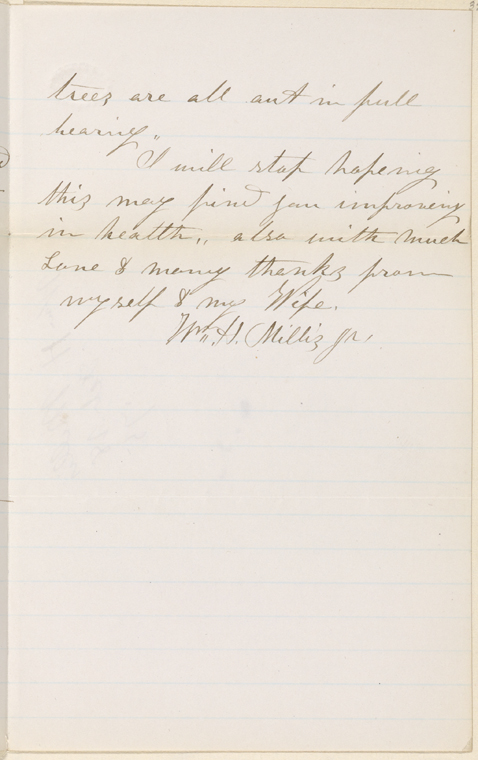 trees are all out in full
bearing„
I will stop hopeing
this may find you improveing
in health„ also with much
Love & many thanks from
myself & my Wife.
Wm„ H. Millis Jr,